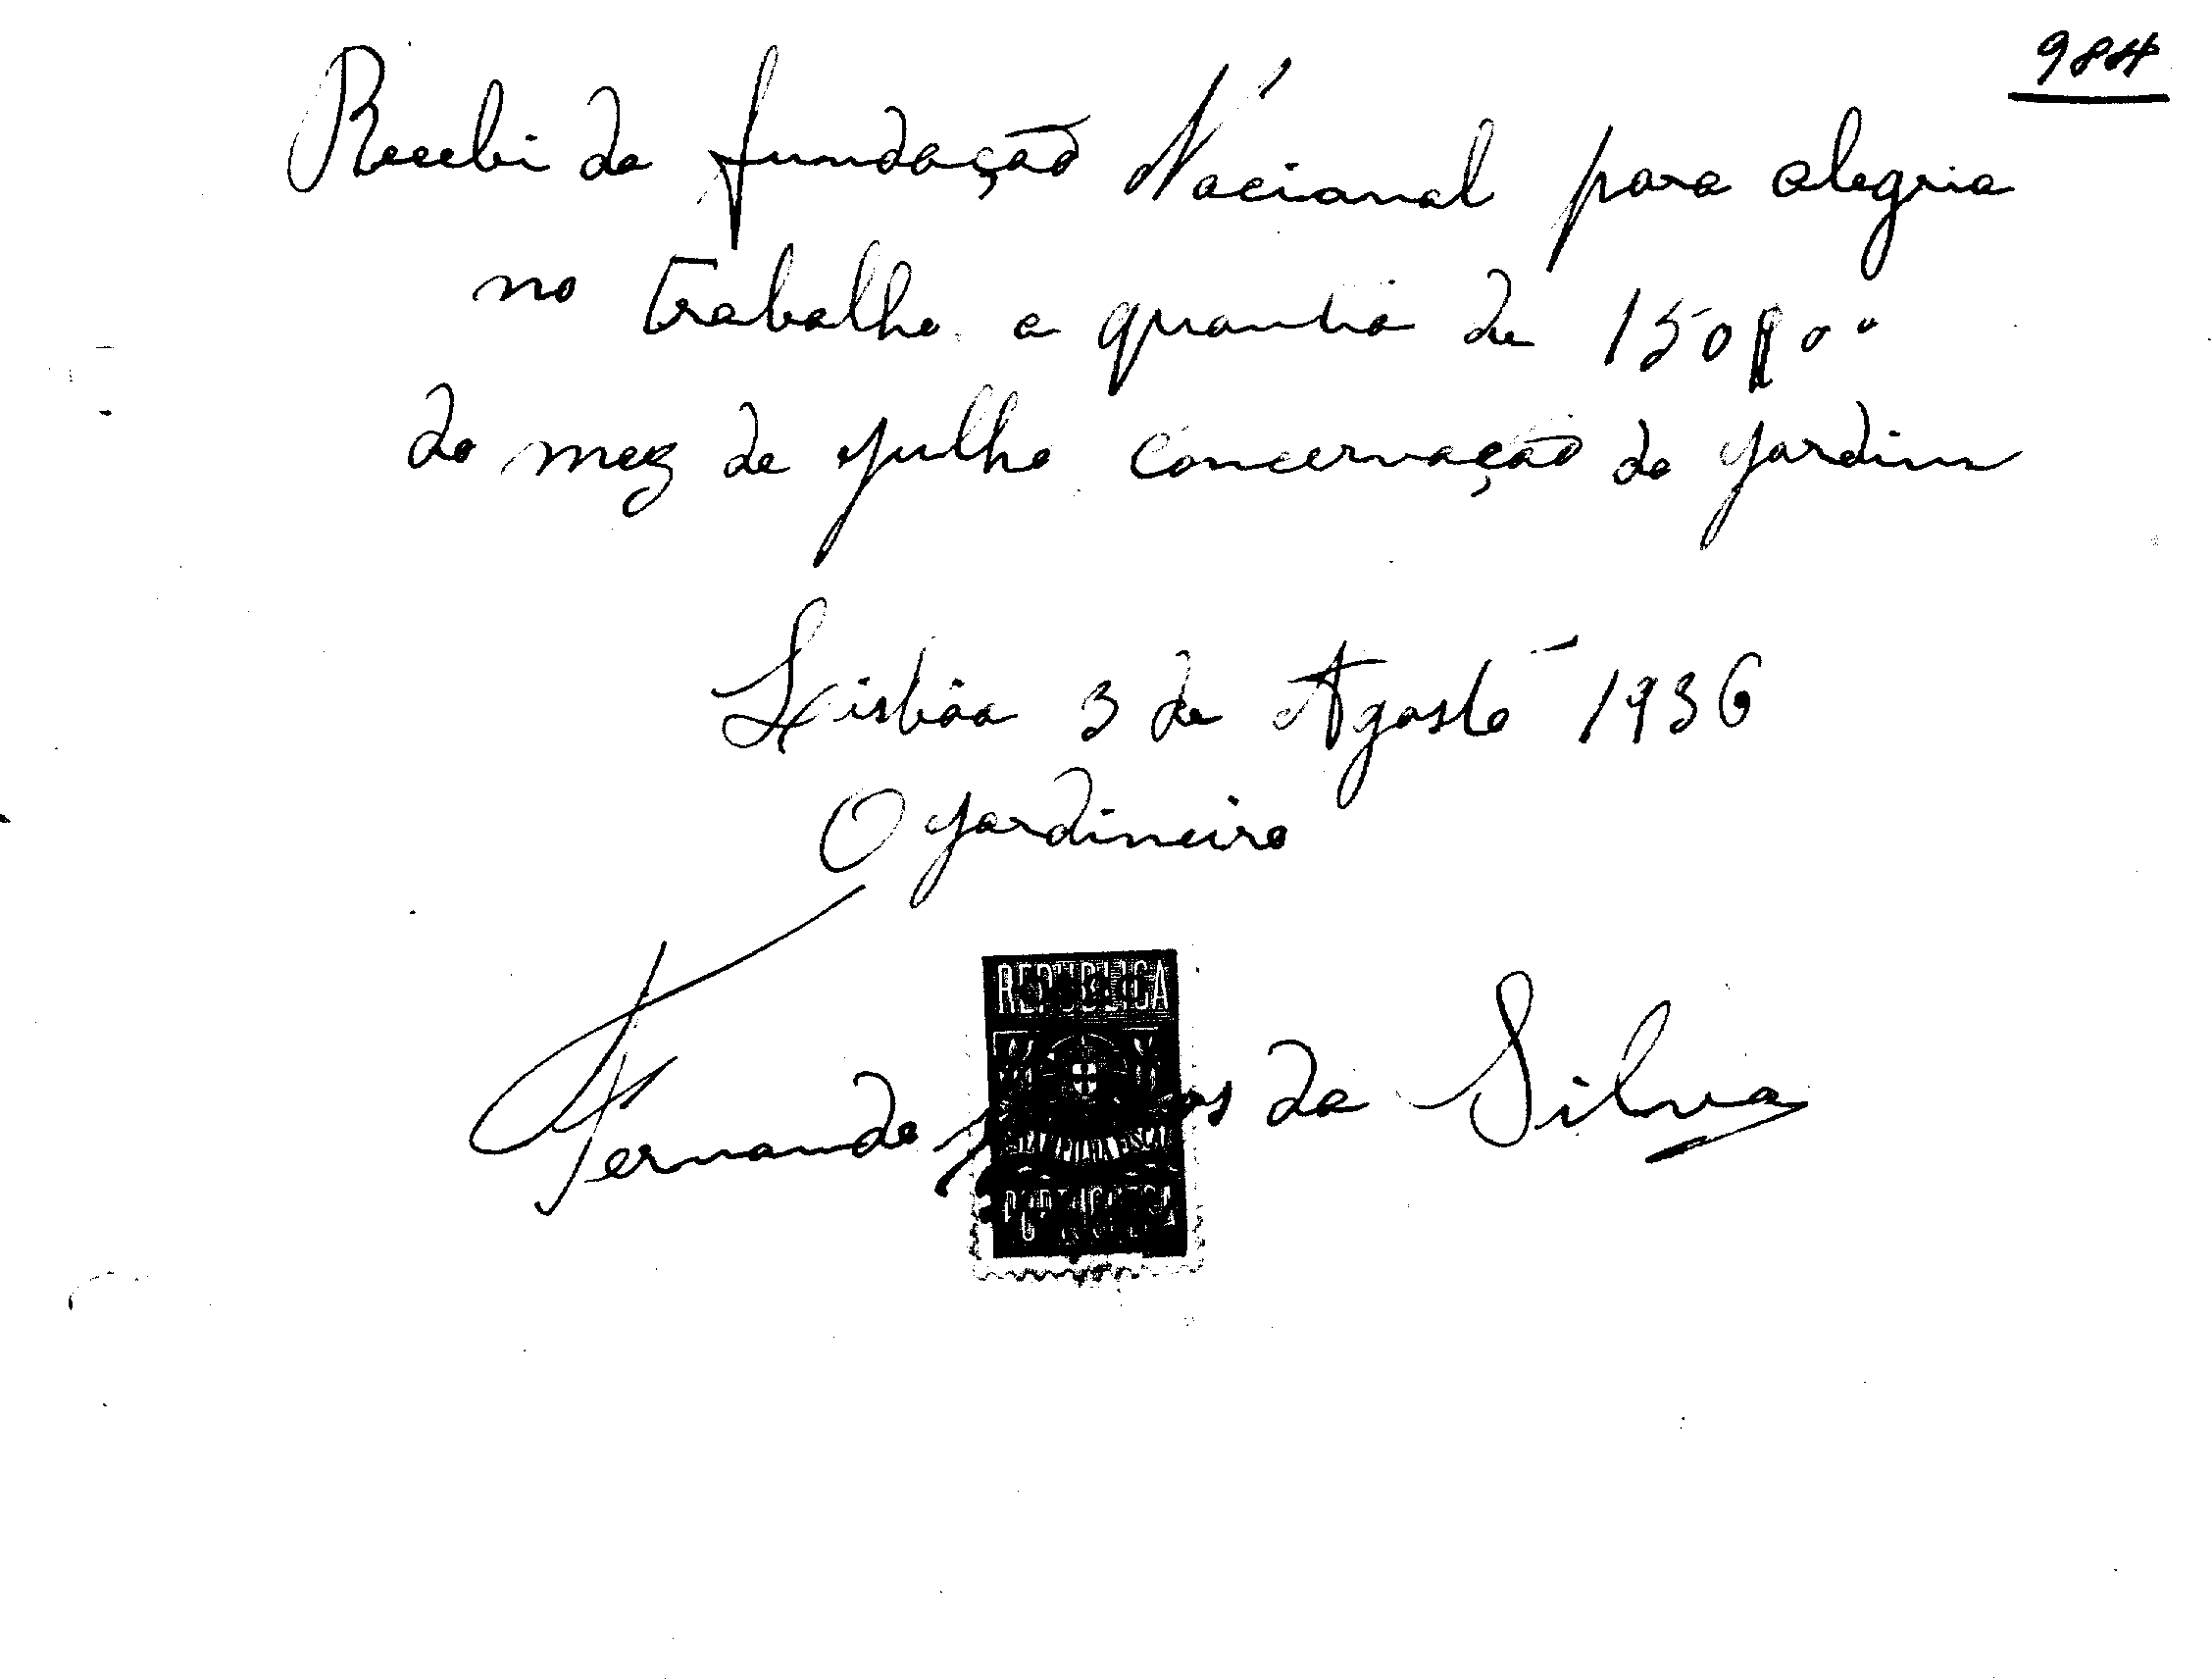 984
Recebi da fundação Nacional para alegria
no trabalho a quantia de 150$00
do mez de julho concervação do jardim
Lisbôa 3 de Agosto 1936
O jardineiro
REPUBLICA
Fernando da Silva
ESTAMPILHA FISCAL
PORTUGUESA